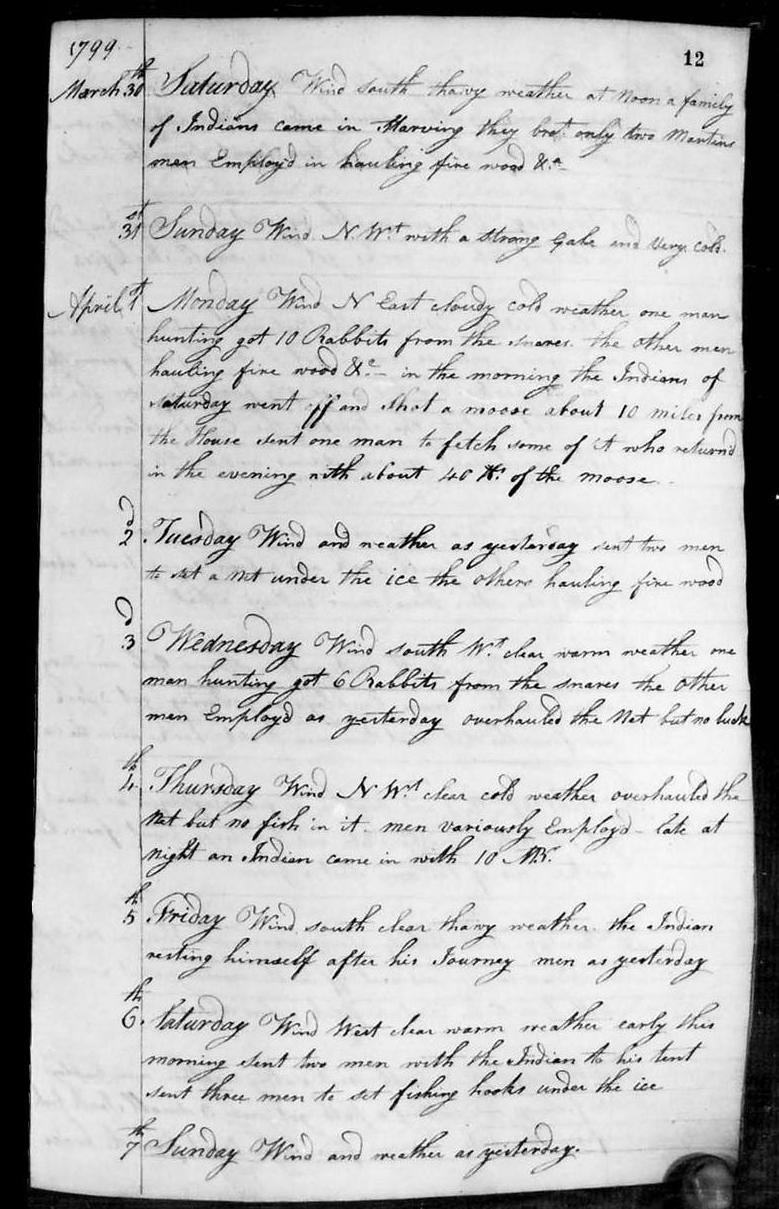 1799
12
March 30th Saturday Wind south thawy weather at Noon a family
of Indians came in Starving they brot. only two Martins
men Employ'd in hauling fire wood &c
31st Sunday Wind N. Wt with a strong Gale and Very cold.
April 1st Monday Wind N East cloudy cold weather one man
hunting got 10 Rabbits from the snares. the other men
hauling fire wood &c - in the morning the Indians of
saturday went off and Shot a moose about 10 miles from
the House sent one man to fetch some of it who return'd
in the evening with about 40 lb. of the moose.
2d Tuesday Wind and weather as yesterday sent two men
to set a Net under the ice the others hauling fire wood
3d Wednesday Wind south Wt clear warm weather one
man hunting got 6 Rabbits from the snares the other
men Employd as yesterday overhauled the Net but no luck
4th Thursday Wind N Wt clear cold weather overhauled the
Net but no fish in it. men variously Employ'd - late at
night an Indian came in with 10 MBr.
5th Friday Wind south clear thawy weather. the Indian
resting himself after his Journey men as yesterday
6th Saturday Wind West clear warm weather early this
morning sent two men with the Indian to his tent
sent three men to set fishing hooks under the ice
7th Sunday Wind and weather as yesterday.